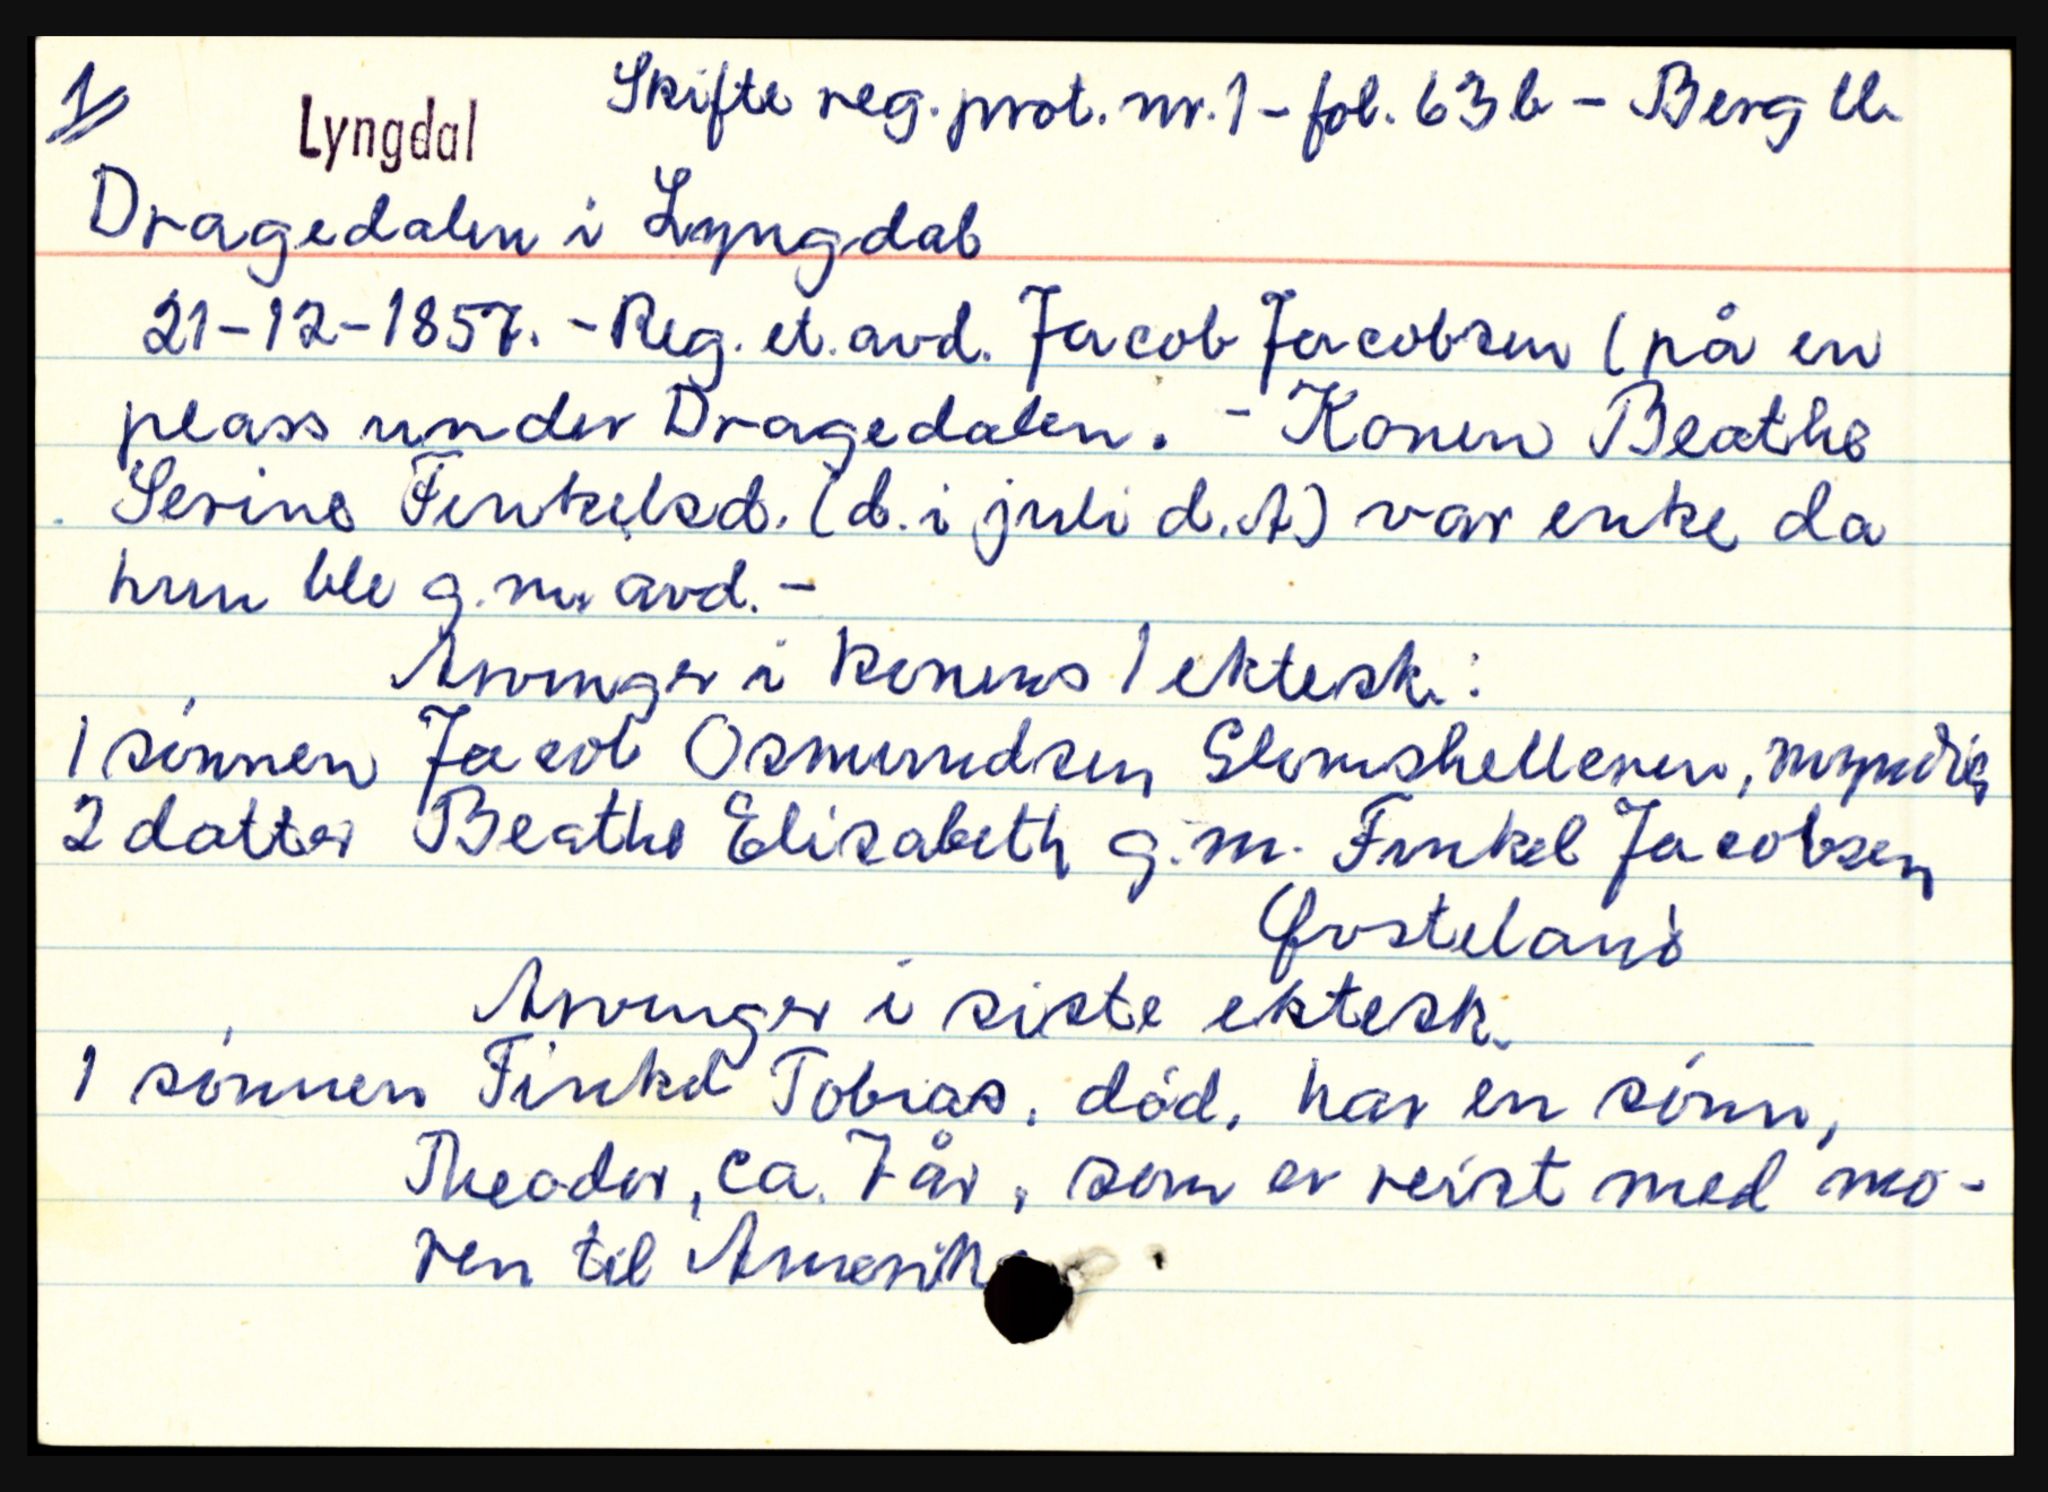 1 Skifte reg. prot. nr. 1 - fol. 63 b -
Lyngdal
Dragedalen i Lyngdal
21-12-1857. - Reg. et. avd. Jacob Jacobsen (på en
plass under Dragedalen. - Konen Beathe
Serine Finkelsd. (d. i juli d. A) var enke da
hun ble g. m. avd. -
Arvinger i konens 1 ektesk.:
1 sønnen Jacob Osmundsen myndig
2 datter Beathe Elisabeth g. m. Finkel Jacobsen
Qvsteland
Arvinger i siste ektesk.
1 sønnen Finkel Tobias, død, har en sønn,
Theodor, ca. 7 år, som er reist med mo-
ren til Amerik